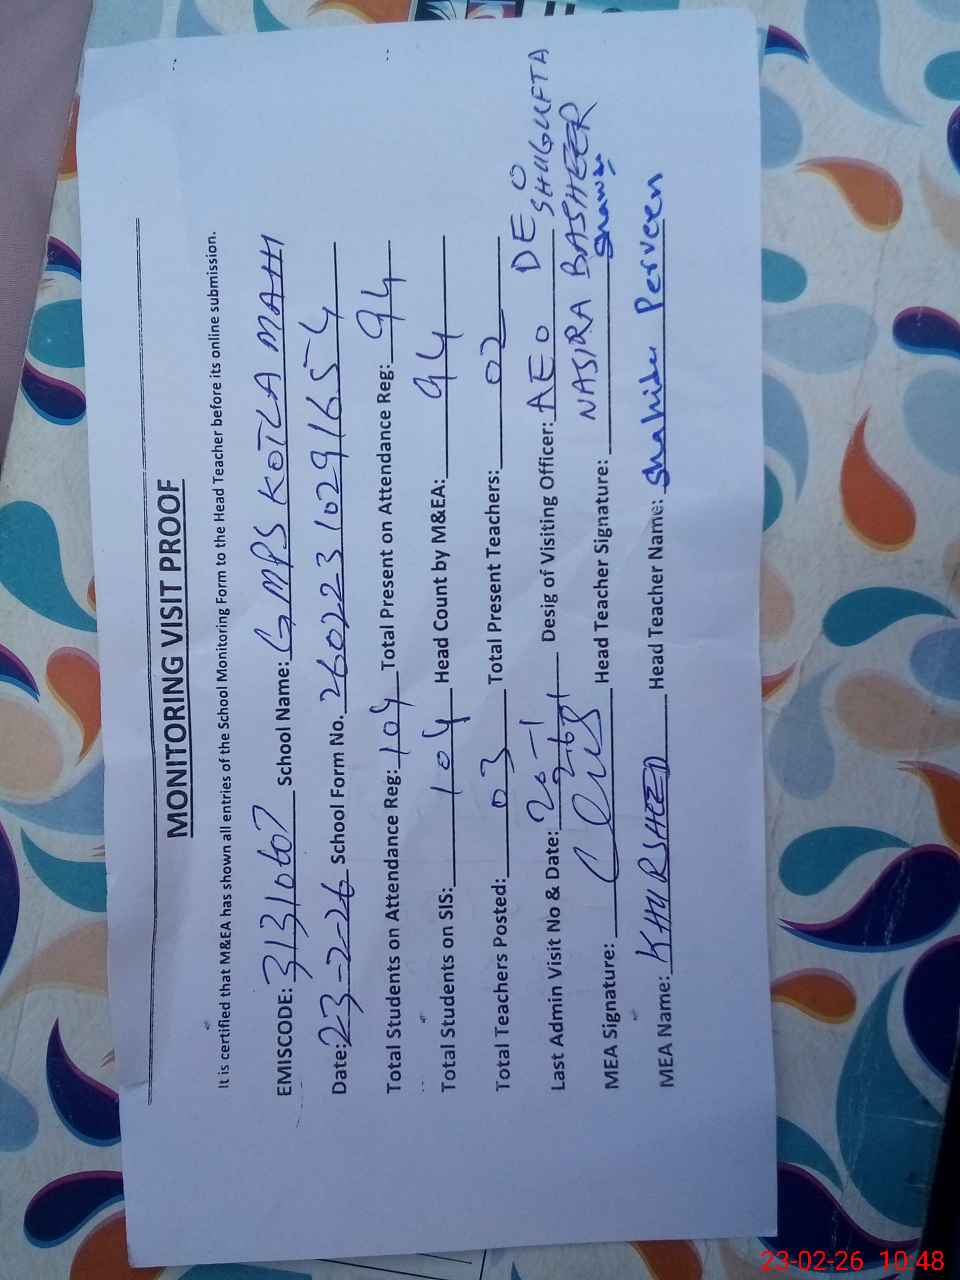 MONITORING VISIT PROOF
It is certified that M&EA has shown all entries of the School Monitoring Form to the Head Teacher before its online submission.
EMISCODE: 31310607 School Name: GMPS KOTLA MAHI
Date: 23-2-26 School Form No. 26022310291654
Total Students on Attendance Reg: 104 Total Present on Attendance Reg: 94
Total Students on SIS: 104 Head Count by M&EA: 94
Total Teachers Posted: 03 Total Present Teachers: 02
DEO
SHUGUFTA
Last Admin Visit No & Date: 20-1 Desig of Visiting Officer: AEO
NASIRA BASHEER
MEA Signature: Head Teacher Signature:
MEA Name: KHURSHEED Head Teacher Name: Shahida Perveen
23-02-26 10:48